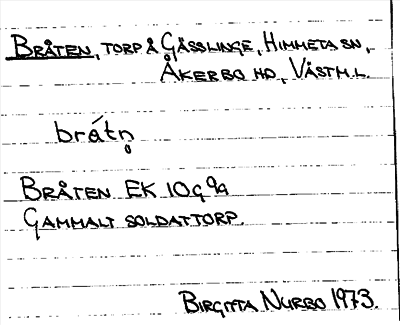 BRÅTEN, TORP Å GÄSSLINGE, HIMMETA SN,
ÅKERBO HD, VÄSTM.L.
brátn̥
BRÅTEN EK 10G 9g
GAMMALT SOLDATTORP.
BIRGITTA NURBO 1973.